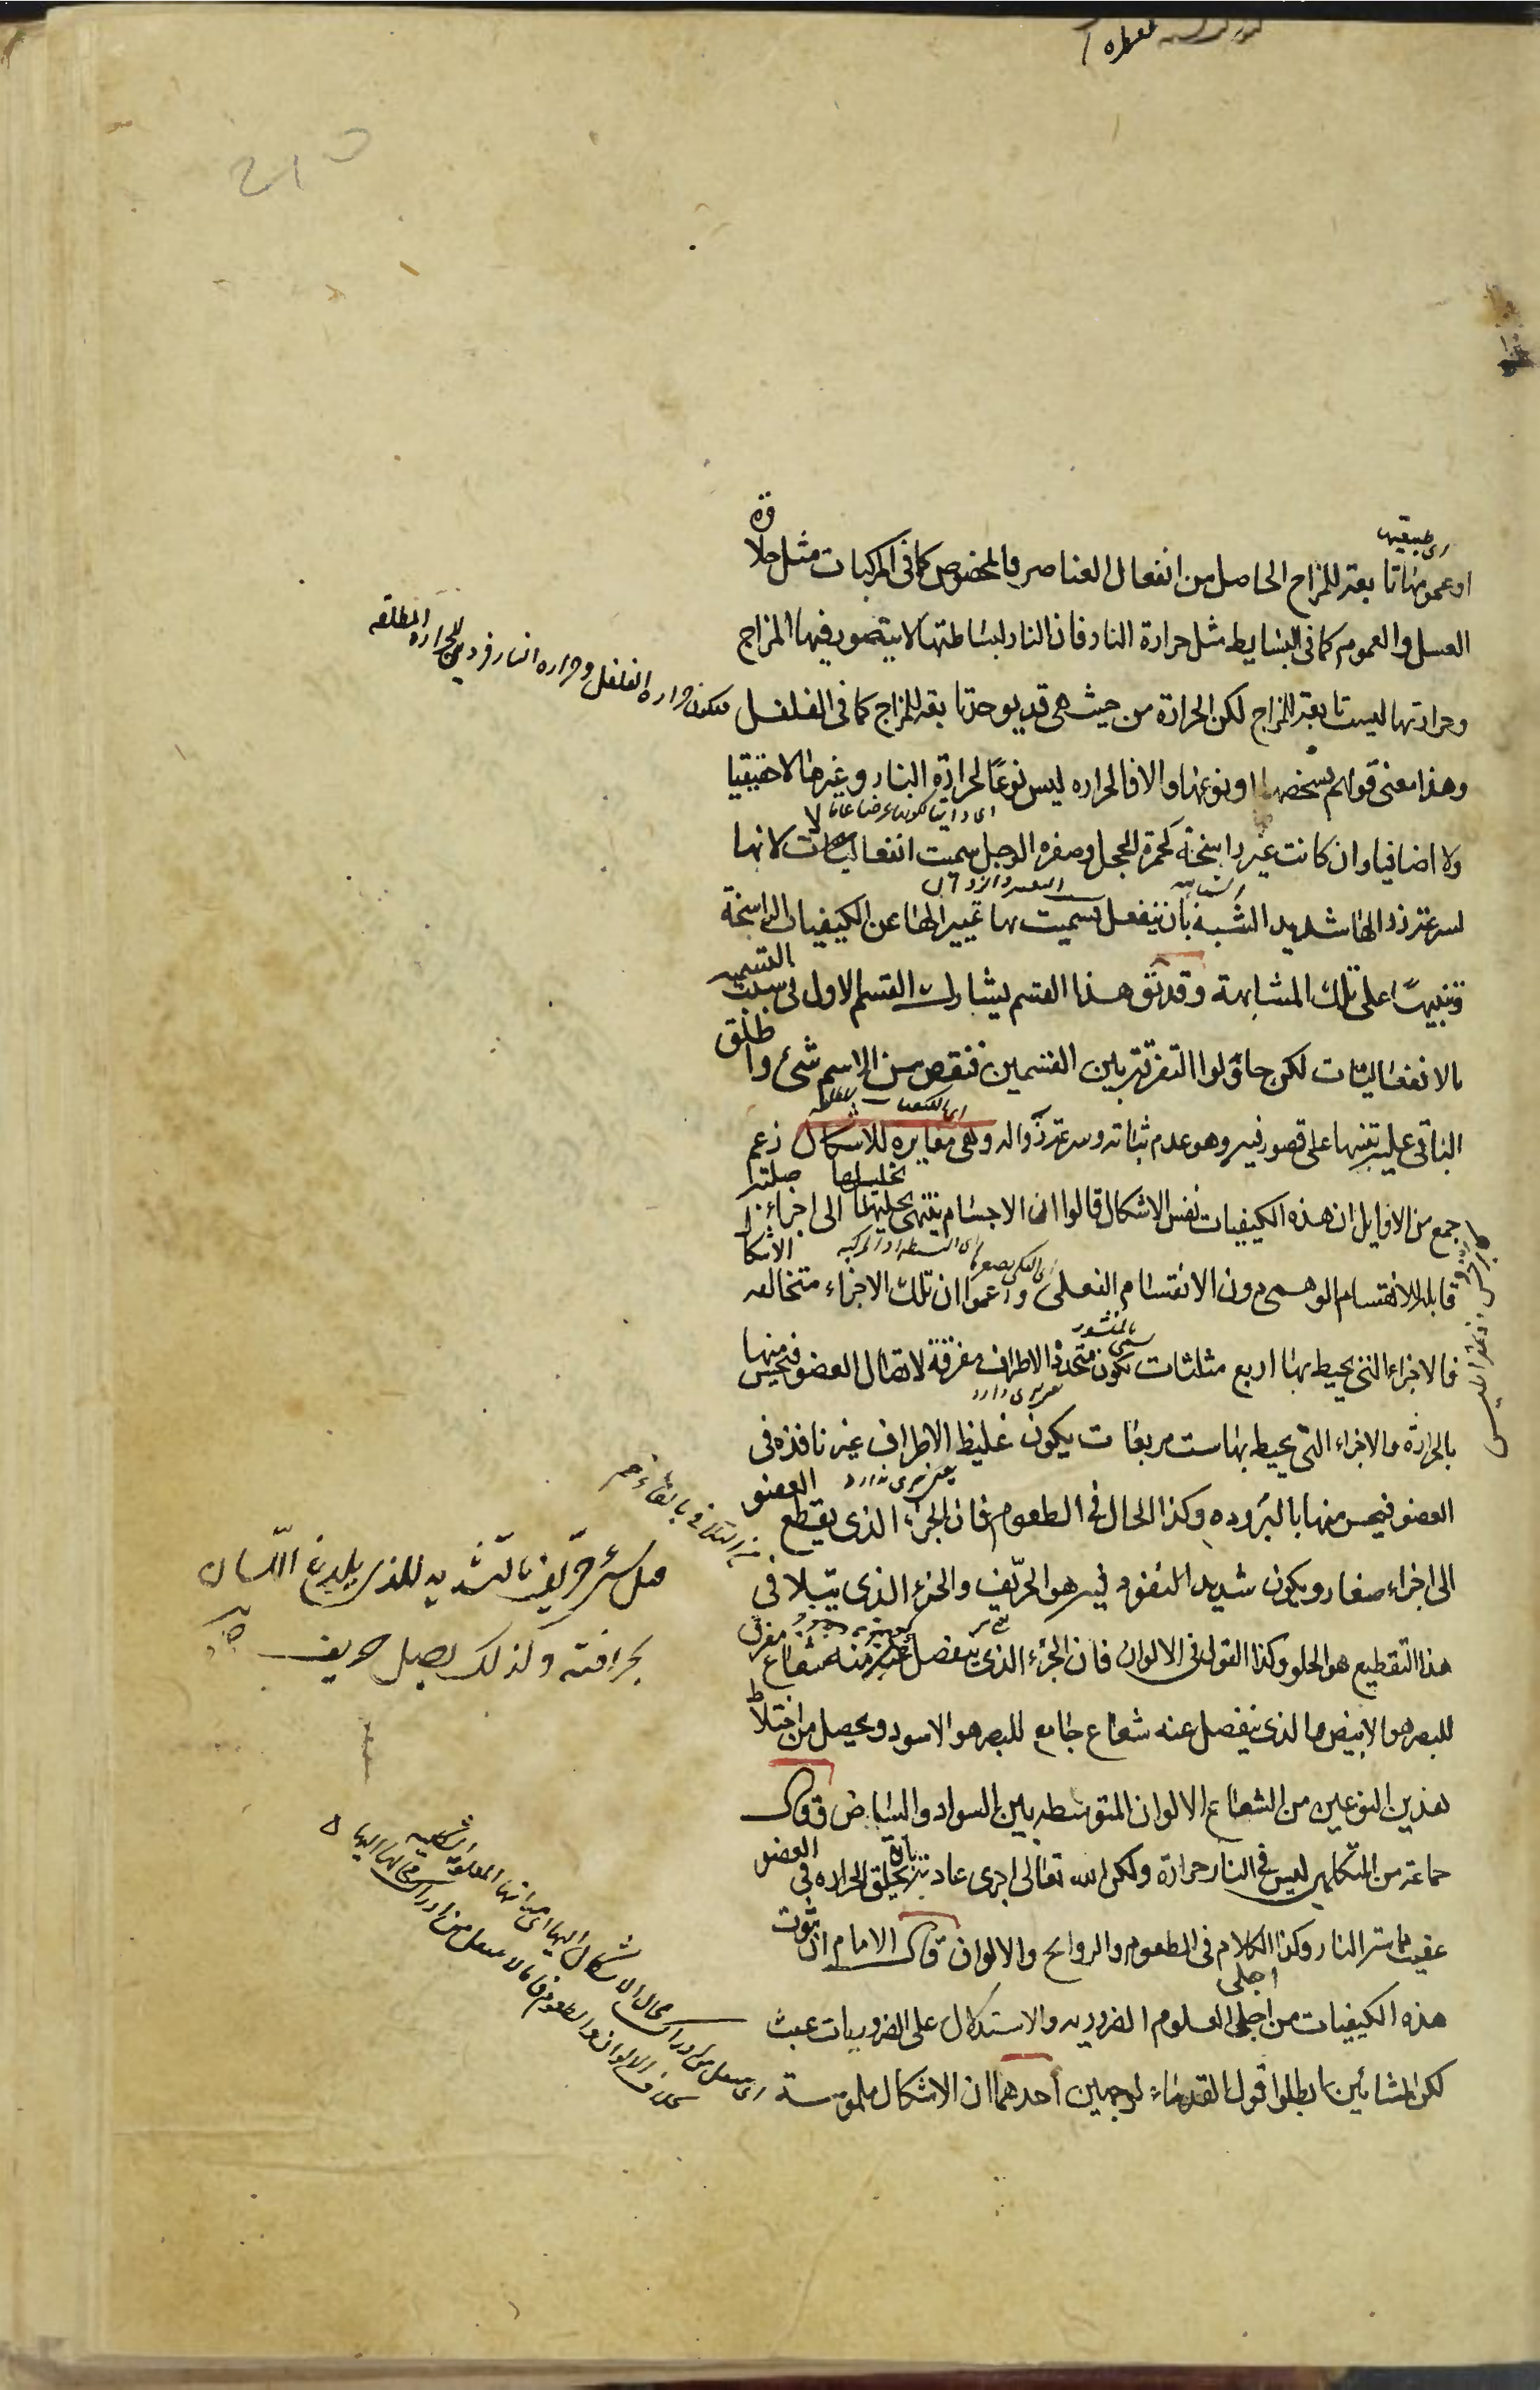 او عمومها تابعة للمزاج الحاصل من انفعال العناصر فالخصوص كما فى المركبات مثل حلاوة
العسل والعموم كما فى البسايط مثل حرارة النار فان النار لبساطتها لا يتصور فيها المزاج
وحرارتها ليست تابعة للمزاج لكن الحرارة من حيث هى قد يوجد تابعة للمزاج كما فى الفلفل
وهذا معنى قولهم بشخصها او نوعها والا فالحراره ليس نوعًا لحرارة النار وغيرها لا حقيقيا
ولا اضافيا وان كانت غير راسخة كحمرة الخجل وصفره الوجل سميت انفعالات لانها
لسرعة زوالها شديد الشبه بان ينفعل فسميت بها تمييرا لها عن الكيفيات الراسخة
وتنبيهًا على تلك المشابهة وقد هذا القسم يشارك القسم الاول فى سبب التسميه
بالانفعاليات لكن حاولوا التفرقة بين القسمين فنقص من الاسم شئ واطلق
الباقى عليه تنبيها على قصور فيه وهو عدم ثباته وسرعة زواله وهى مغايره للاشكال زعم
جمع من الاوايل ان هذه الكيفيات نفس الاشكال قالوا ان الاجسام ينتهى تحليلها الى اجزاء صلبة
قابلة للانقسام الوهمى دون الانقسام الفعلى وزعموا ان تلك الاجزاء متخالفه الاشكال
فالاجزاء التى يحيط بها اربع مثلثات يكون متحدة الاطراف مفرقة لاتصال العضو فيحس منها
بالحرارة والاجزاء التى يحيط بها ست مربعات يكون غليظ الاطراف غير نافذه فى
العضو فيحس منها بالبروده وكذا الحال فى الطعوم فان الجزء الذى يقطع العضو
الى اجزاء صغار ويكون شديد النفوذ فيه هو الحريف والجزء الذى يتلافى
هذا التقطيع هو الحلو وكذا القول فى الالوان فان الجزء الذى ينفصل منه شعاع مفرق
للبصر هو الابيض والذى ينفصل عنه شعاع جامع للبصر هو الاسود ويحصل من اختلاط
هذين النوعين من الشعاع الالوان المتوسطه بين السواد والبياض وقال
جماعة من المتكلمين ليس فى النار حرارة ولكن الله تعالى اجرى عادته بخلق الحراره فى العضو
عقيب مماسة النار وكذا الكلام فى الطعوم والروايح والالوان قال الامام ان ثبوت
هذه الكيفيات من اجلى العلوم الضروريه والاستدلال على الضروريات عبث
لكن المشائين ابطلوا قول القدماء لوجهين احدهما ان الاشكال ملموسة
فيكون حراره الفلفل وحراره النار فردين للحراره المطلقه
حريف بالتشديد للذى يلدغ اللسان
بحرافته وكذلك بصل حريف